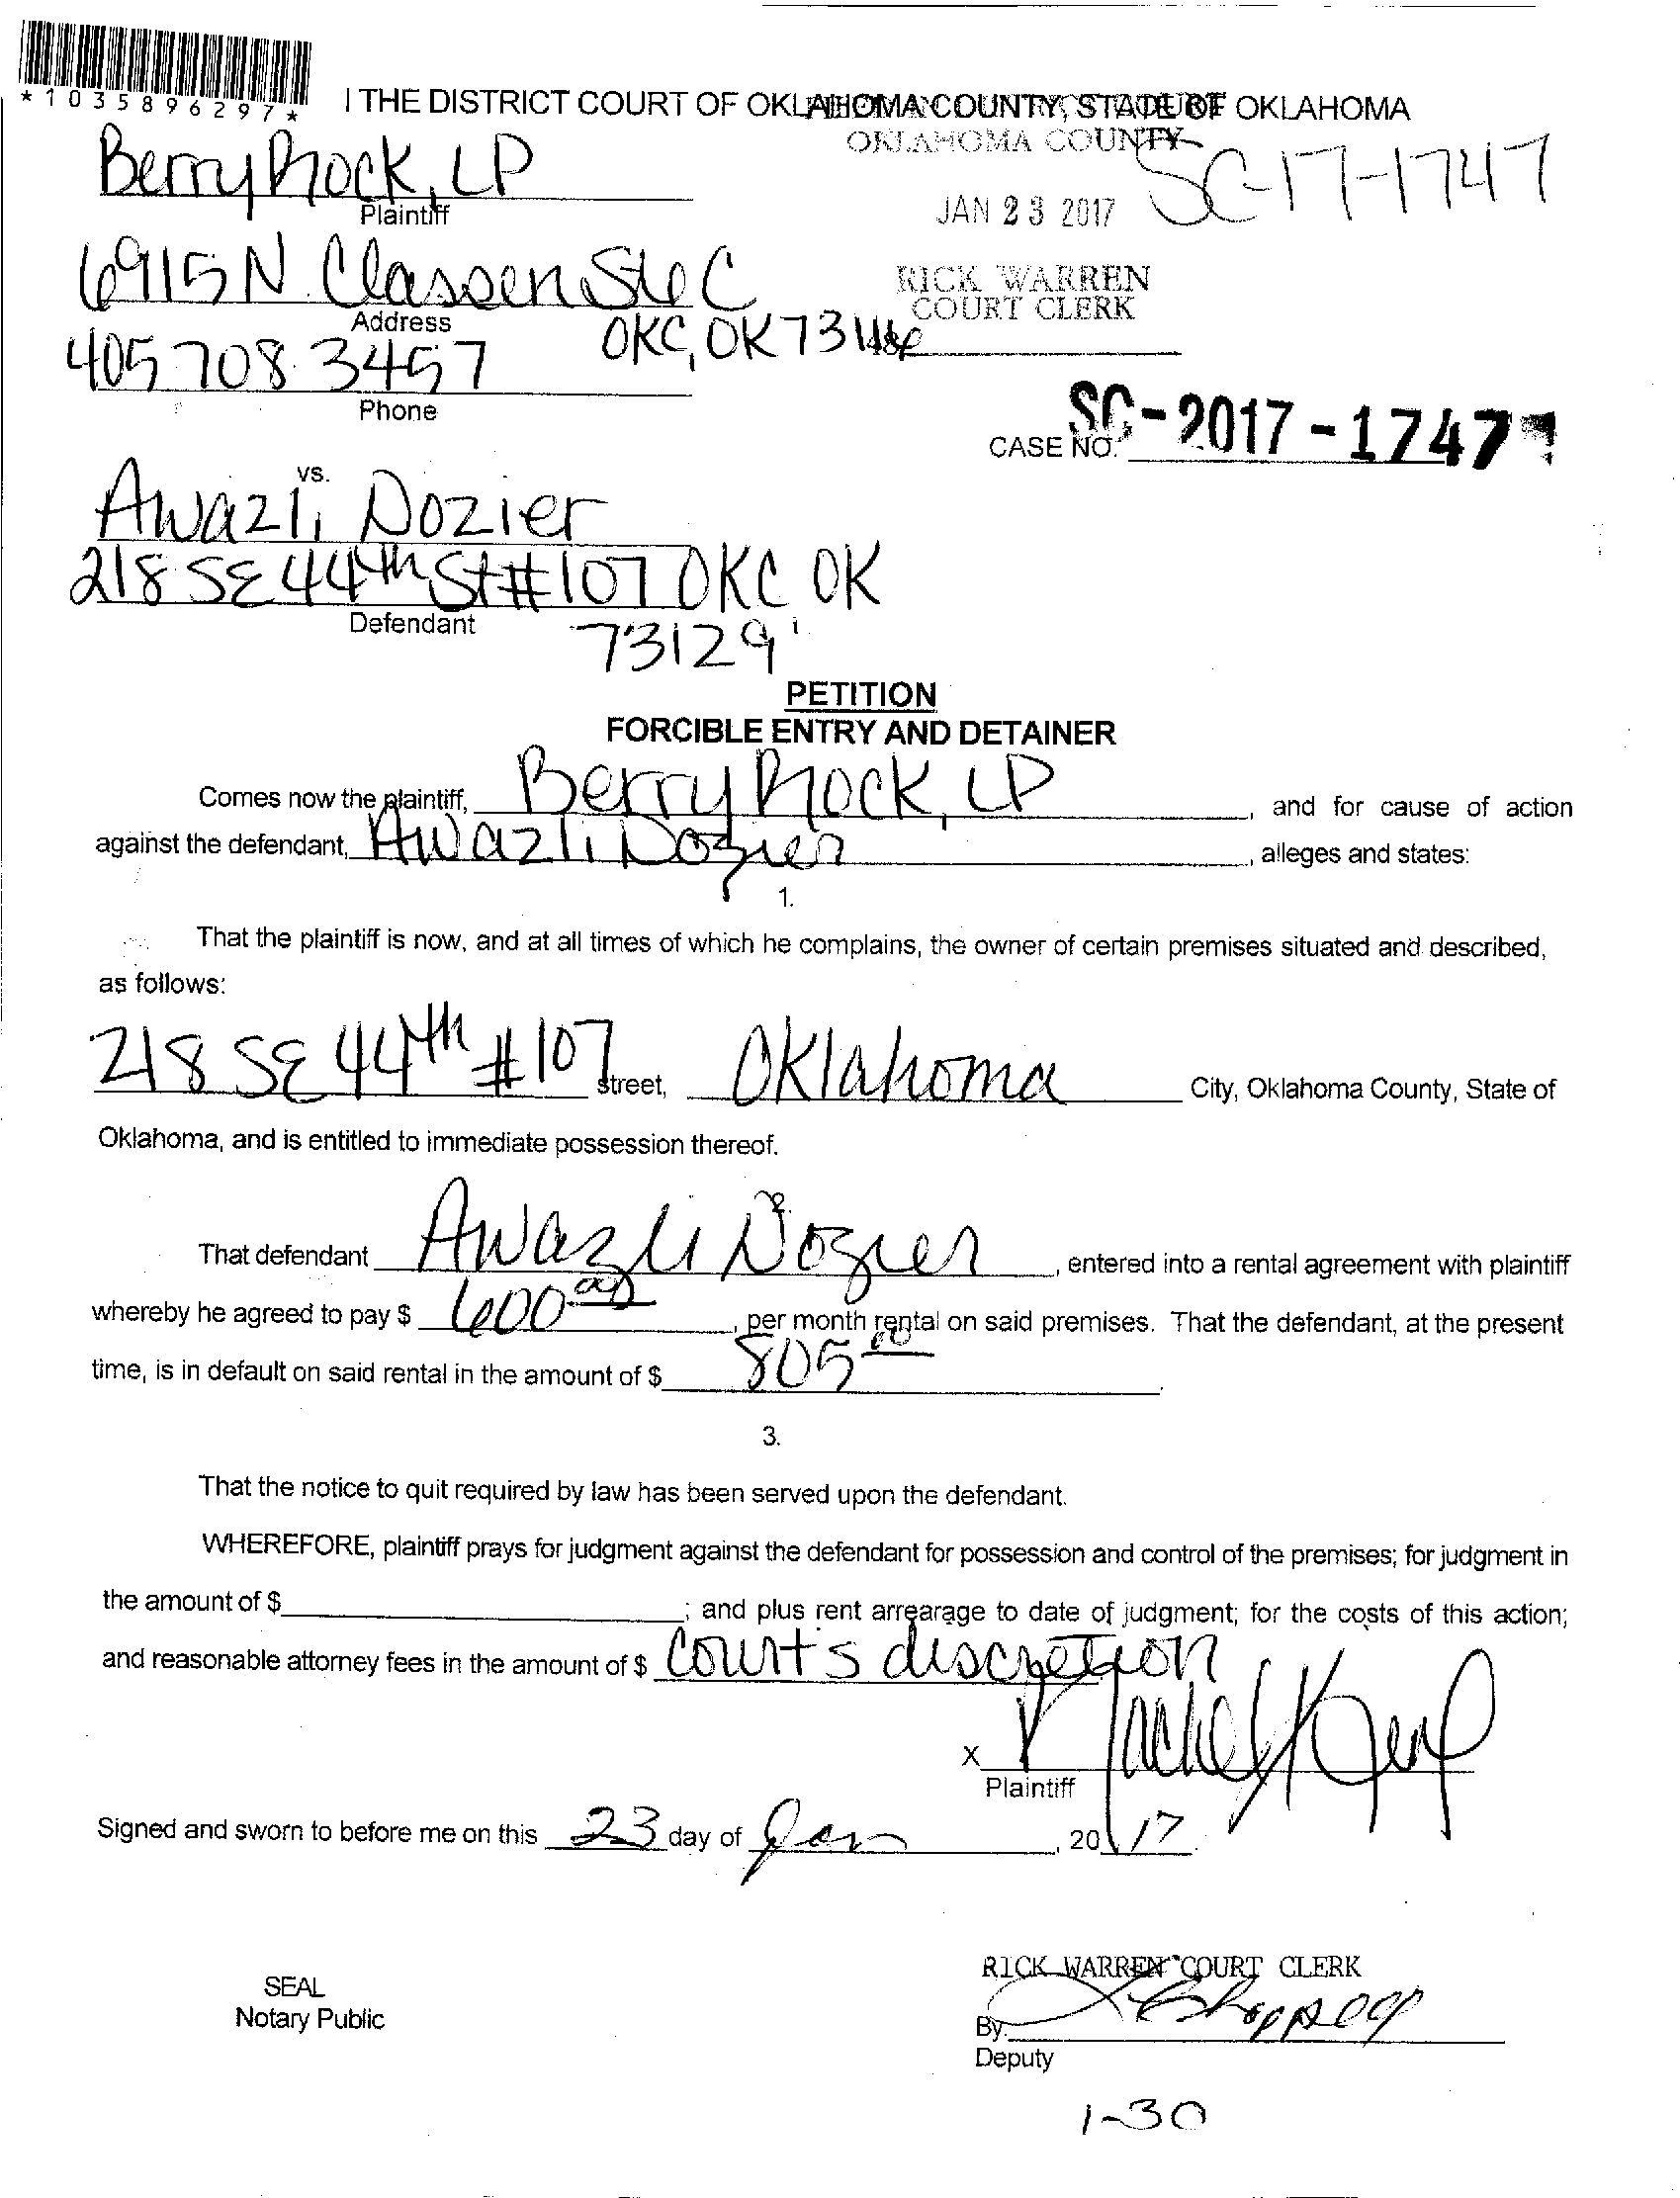 *1035896297*
THE DISTRICT COURT OF OKLAHOMA COUNTY, STATE OF OKLAHOMA
OKLAHOMA COUNTY
BerryRock, LP
SC-17-1747
Plaintiff
JAN 23 2017
6915 N. Classen Ste C
RICK WARREN
COURT CLERK
Address
OKC, OK 73116
405 708 3457
Phone
CASE NO. SC-2017-1747
vs.
Awazli Dozier
218 SE 44th St #107 OKC OK
Defendant
73129
PETITION
FORCIBLE ENTRY AND DETAINER
Comes now the plaintiff, BerryRock, LP, and for cause of action
against the defendant, Awazli Dozier, alleges and states:
1.
That the plaintiff is now, and at all times of which he complains, the owner of certain premises situated and described,
as follows:
218 SE 44th #107 street, Oklahoma City, Oklahoma County, State of
Oklahoma, and is entitled to immediate possession thereof.
2.
That defendant Awazli Dozier, entered into a rental agreement with plaintiff
whereby he agreed to pay $ 600.00, per month rental on said premises. That the defendant, at the present
time, is in default on said rental in the amount of $ 805.00.
3.
That the notice to quit required by law has been served upon the defendant.
WHEREFORE, plaintiff prays for judgment against the defendant for possession and control of the premises; for judgment in
the amount of $ ; and plus rent arrearage to date of judgment; for the costs of this action;
and reasonable attorney fees in the amount of $ Court's discretion
X
Plaintiff
Signed and sworn to before me on this 23 day of Jan, 2017.
RICK WARREN COURT CLERK
SEAL
Notary Public
By:
Deputy
1-30